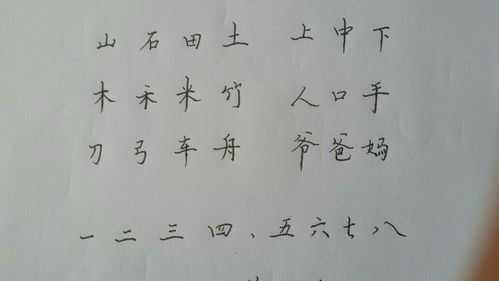 山石田土 上中下
木禾米竹 人口手
刀弓车舟 爷爸妈
一二三四、五六七八